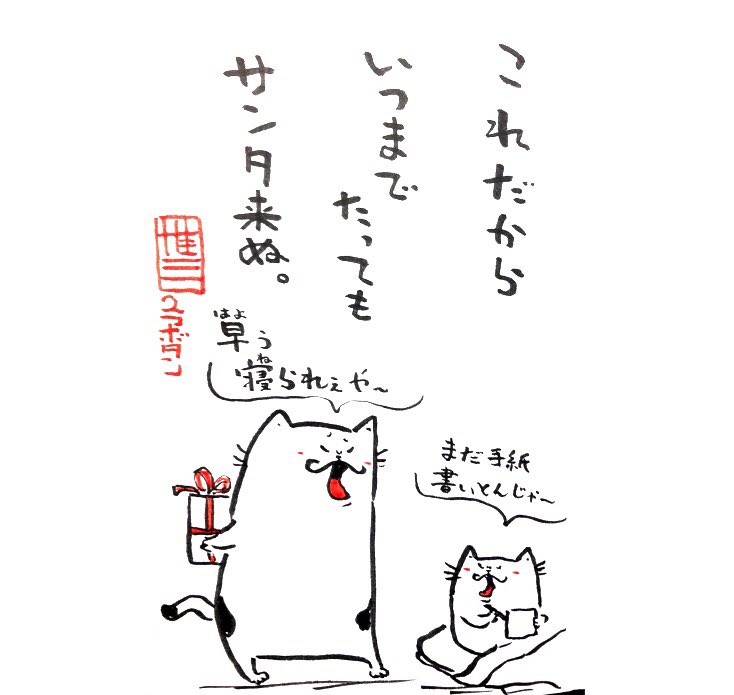 これだから
いつまで
たっても
サンタ来ぬ。
コマボタン
草う
はよ
寝られぇや〜
ね
まだ手紙
書いとんじゃ〜